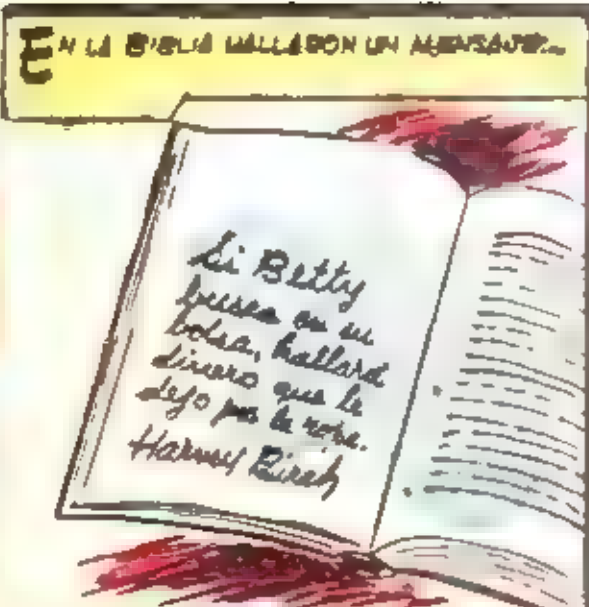 EN LA BIBLIA HALLARON UN MENSAJE...
Si Betty
busca en su
bolsa, hallará
dinero que le
dejo por la ropa.
Harvey Birch